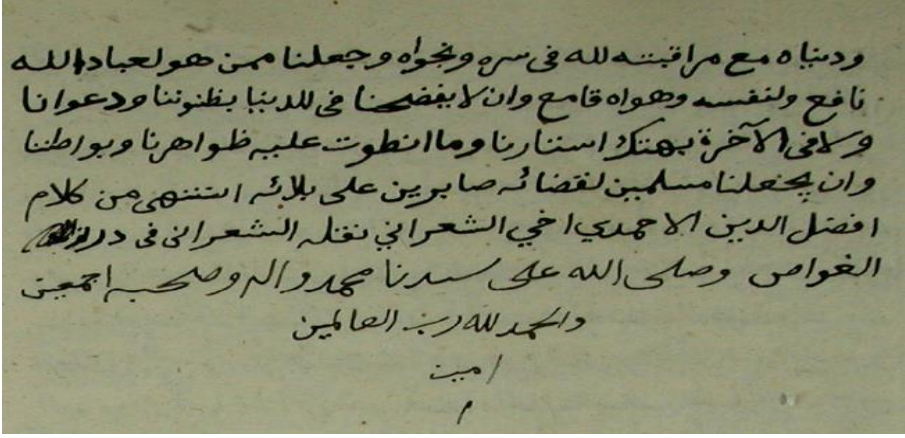 ودنياه مع مراقبته لله فى سره ونجواه وجعلنا ممن هو لعباد الله
نافع ولنفسه وهواه قامع وان لا يفضحنا فى الدنيا بظنوننا ودعوانا
ولا فى الآخرة بهتك استنارنا وما انطوت عليه ظواهرنا وبواطننا
وان يجعلنا مسلمين لقضائه صابرين على بلائه انتهى من كلام
افضل الدين الاحمدي اخي الشعراني نقله الشعرانى فى درر
الغواص وصلى الله على سيدنا محمد واله وصحبه اجمعين
والحمد لله رب العالمين
امين
م